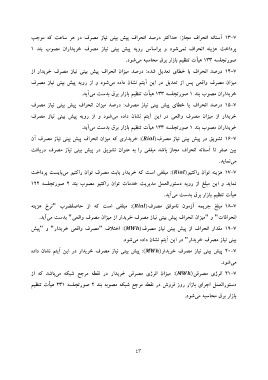 ۱۳-۷ آستانه انحراف مجاز: حداکثر درصد انحراف پیش بینی نیاز مصرف در هر ساعت که موجب
پرداخت هزینه انحراف نمی‌شود و براساس رویه پیش بینی نیاز مصرف خریداران مصوب بند ۱
صورتجلسه ۱۳۳ هیأت تنظیم بازار برق محاسبه می‌شود.
۱۴-۷ درصد انحراف با خطای تعدیل شده: درصد میزان انحراف پیش بینی نیاز مصرف خریدار از
میزان مصرف واقعی پس از تعدیل در این آیتم نشان داده می‌شود و از رویه پیش بینی نیاز مصرف
خریداران مصوب بند ۱ صورتجلسه ۱۳۳ هیأت تنظیم بازار برق بدست می‌آید.
۱۵-۷ درصد انحراف با خطای پیش بینی نیاز مصرف: درصد میزان انحراف پیش بینی نیاز مصرف
خریدار از میزان مصرف واقعی در این آیتم نشان داده می‌شود و از رویه پیش بینی نیاز مصرف
خریداران مصوب بند ۱ صورتجلسه ۱۳۳ هیأت تنظیم بازار برق بدست می‌آید.
۱۶-۷ تشویق در پیش بینی نیاز مصرف(Rial): خریداری که میزان انحراف پیش بینی نیاز مصرف آن
بین صفر تا آستانه انحراف مجاز باشد مبلغی را به عنوان تشویق در پیش بینی نیاز مصرف دریافت
می‌نماید.
۱۷-۷ هزینه توان راکتیو(Rial): مبلغی است که خریدار بابت مصرف توان راکتیو می‌بایست پرداخت
نماید و این مبلغ از رویه دستورالعمل مدیریت خدمات توان راکتیو مصوب بند ۲ صورتجلسه ۱۲۲
هیأت تنظیم بازار برق بدست می‌آید.
۱۸-۷ مبلغ جریمه آزمون ناموفق مصرف(Rial): مبلغی است که از حاصلضرب "نرخ هزینه
انحرافات" و "میزان انحراف پیش بینی نیاز مصرف خریدار از میزان مصرف واقعی" بدست می‌آید.
۱۹-۷ مقدار انحراف از پیش بینی نیاز مصرف(MWh): اختلاف "مصرف واقعی خریدار" و "پیش
بینی نیاز مصرف خریدار" در این آیتم نشان داده می‌شود.
۲۰-۷ پیش بینی نیاز مصرف خریدار(MWh): پیش بینی نیاز مصرف خریدار در این آیتم نشان داده
می‌شود.
۲۱-۷ انرژی مصرفی(MWh): میزان انرژی مصرفی خریدار در نقطه مرجع شبکه می‌باشد که از
دستورالعمل اجرای بازار روز فروش در نقطه مرجع شبکه مصوبه بند ۲ صورتجلسه ۲۳۱ هیأت تنظیم
بازار برق محاسبه می‌شود.